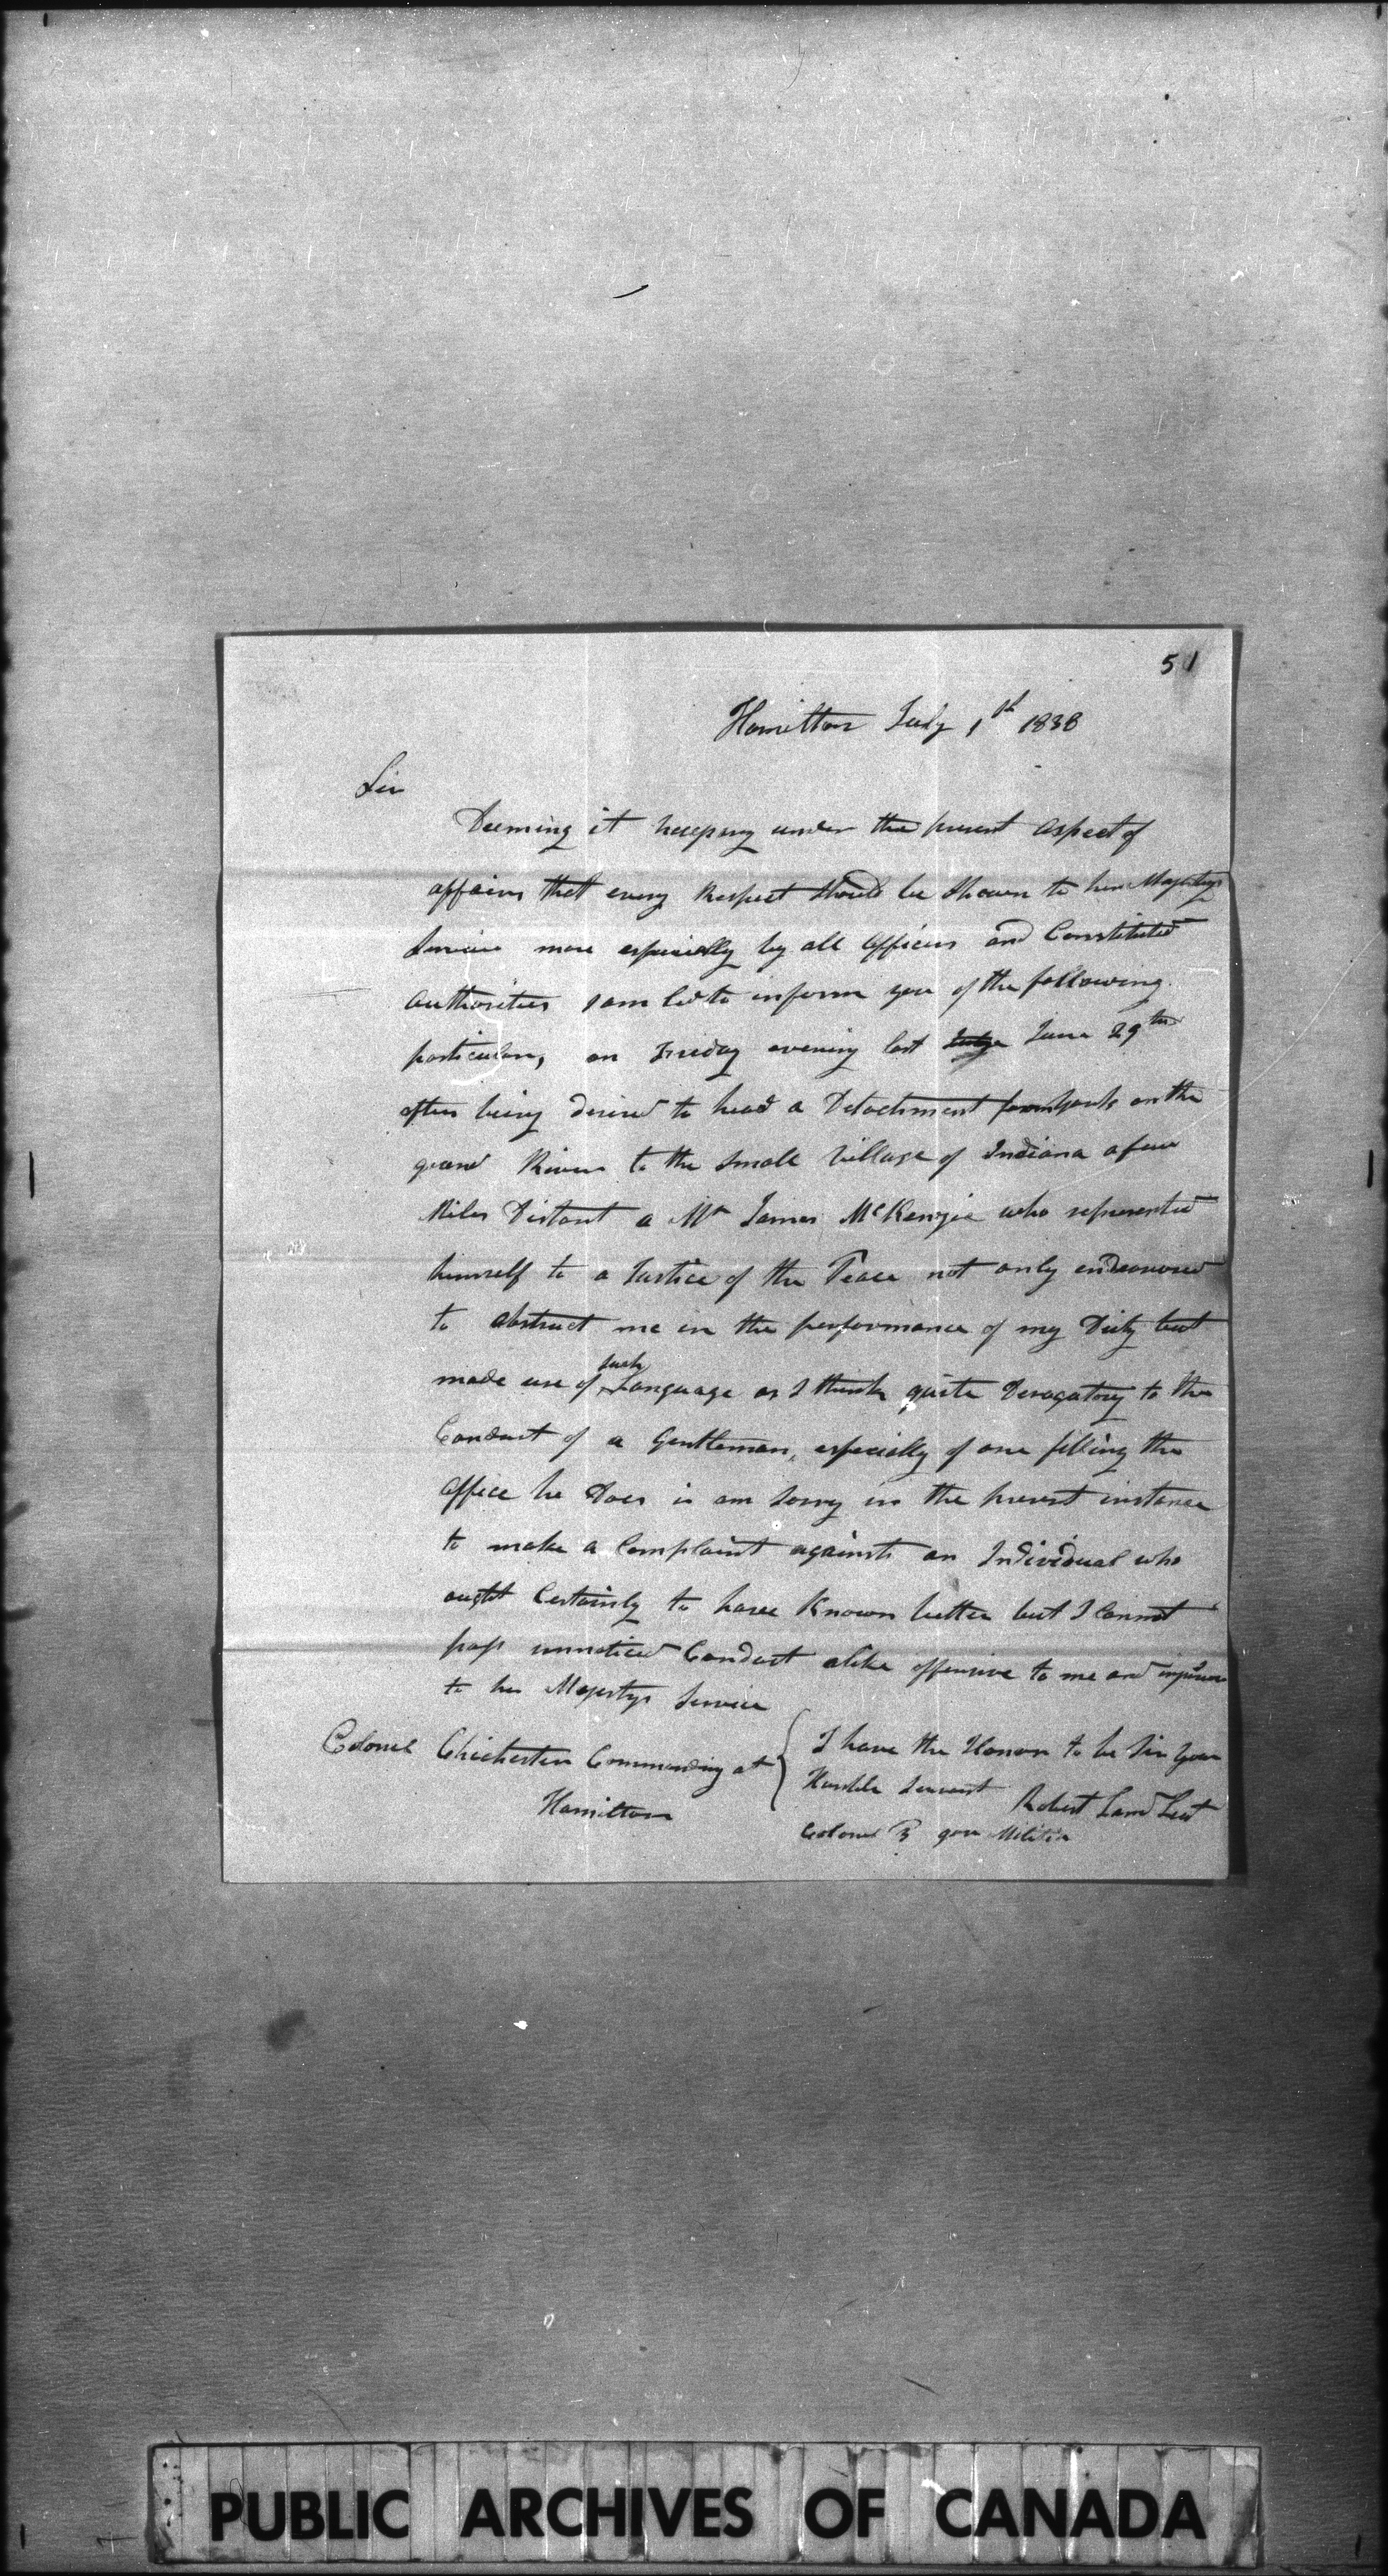 51
Hamilton July 1st 1838
Sir
Deeming it necessary under the present aspect of
affairs that every Respect should be Shewn to her Majestys
Service more especially by all Officers and Constituted
authorities I am led to inform you of the following
particulars, on Friday evening last June 29th
after being desired to head a Detachment from York on the
grand River to the Small Village of Indiana a few
Miles Distant a Mr James McKenzie who represented
himself to a Justice of the Peace not only endeavored
to obstruct me in the performance of my Duty but
made use of such Language as I think quite Derogatory to the
Conduct of a Gentleman, especially of one filling the
office he Does i am sorry in the present instance
to make a Complaint against an Individual who
ought Certainly to have Known better but I Cannot
pass unnoticed Conduct alike offensive to me and injurious
to her Majestys Service
Colonel Chichester Commanding at
Hamilton
I have the Honor to be Sir your
Humble Servant Robert Land Leut
Colonel 3 gore Militia
PUBLIC ARCHIVES OF CANADA